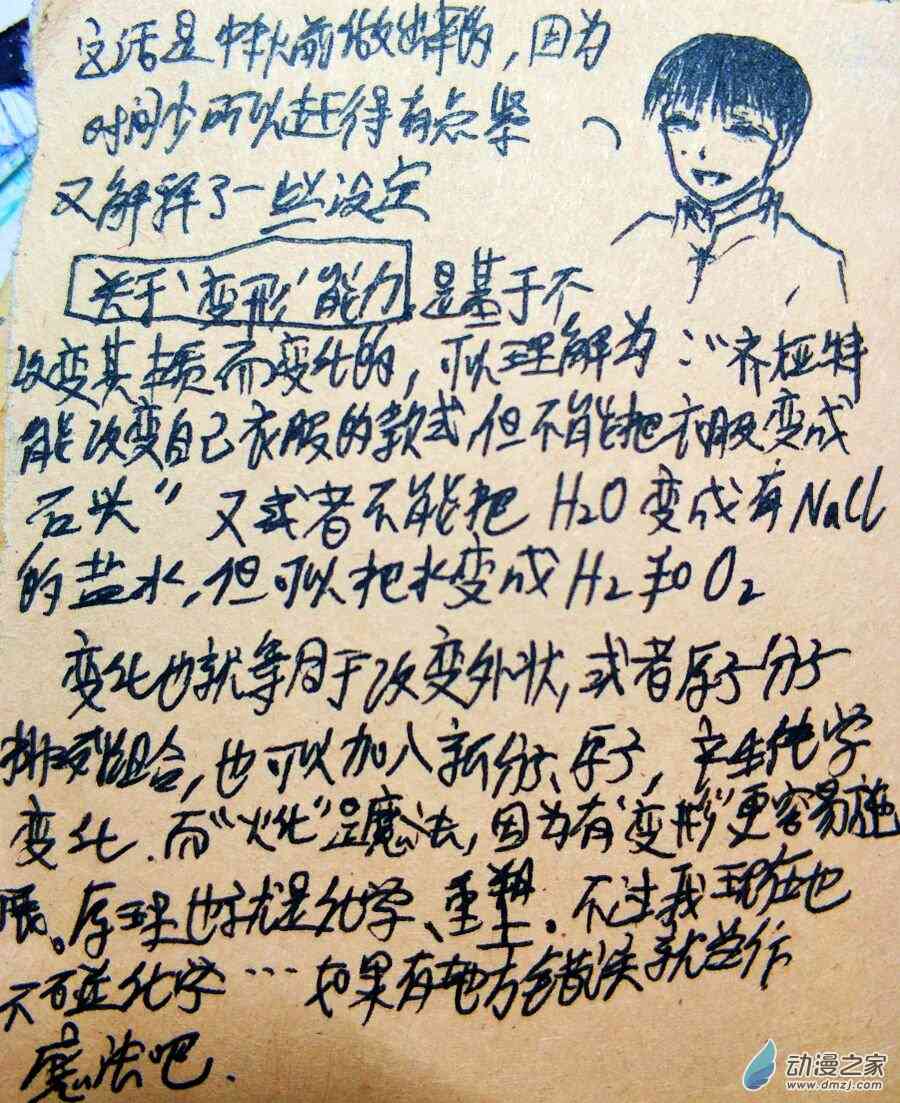 这话是中秋前做出来的，因为
时间少所以赶得有点紧
又解释了一些设定
关于‘变形’能力,是基于不
改变其本质而变化的，可以理解为：“齐桠特
能改变自己衣服的款式,但不能把衣服变成
石头” 又或者不能把 H2O 变成有NaCl
的盐水,但可以把水变成H2和O2
变化也就等同于改变外状,或者原子分子
排列组合,也可以加入新分子、原子，产生化学
变化.而“火化”是魔法,因为有‘变形’更容易施
展。原理也就是化学、重塑。不过我现在也
不碰化学…如果有地方错误就当作
魔法吧.
动漫之家
www.dmzj.com